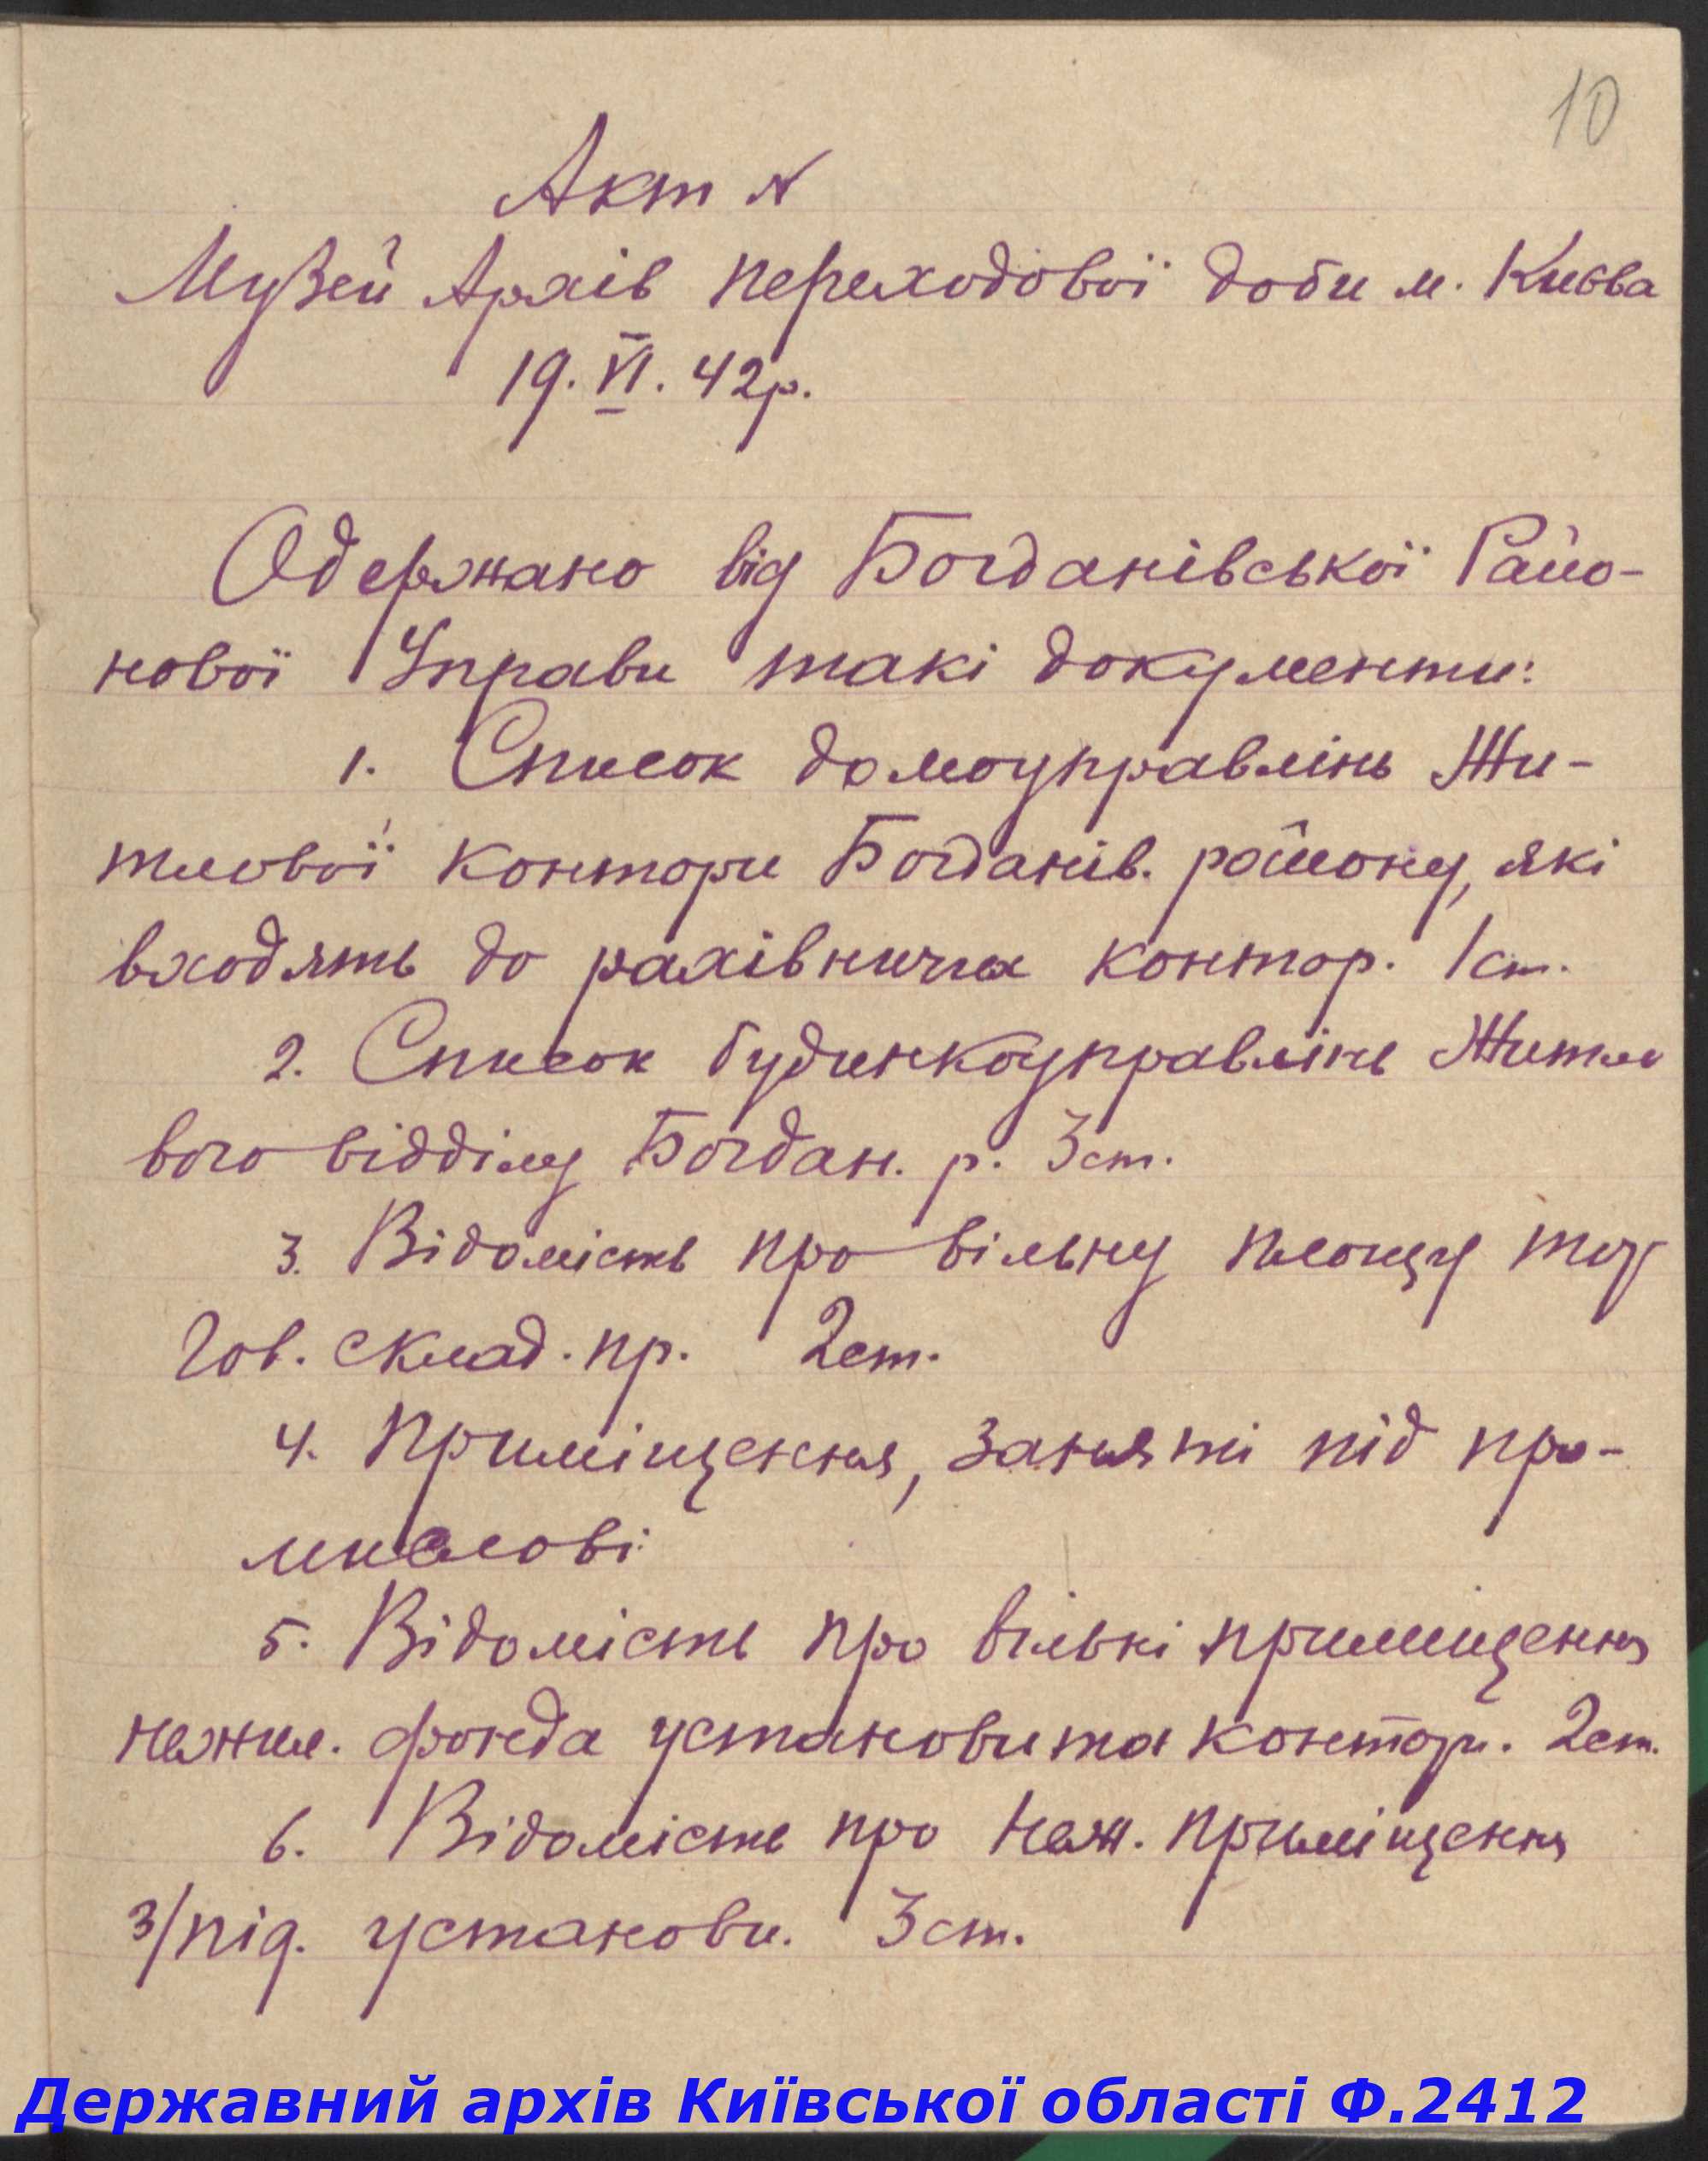 10
Акт №
Музей Архів переходової доби м. Києва
19.VI.42р.
Одержано від Богданівської Райо-
нової Управи такі документи:
1. Список домоуправлінь Жи-
тлової контори Богданів. району, які
входять до рахівничих контор. 1 ст.
2. Список будинкоуправлінь Житло
вого відділу Богдан. р. 3 ст.
3. Відомість про вільну площу тор
гов. склад. пр. 2 ст.
4. Приміщення, заняті під про-
мислові
5. Відомість про вільні приміщення
нежил. фонда установи та контори. 2 ст.
6. Відомість про неж. приміщення
з/під. установи. 3 ст.
Державний архів Київської області Ф.2412